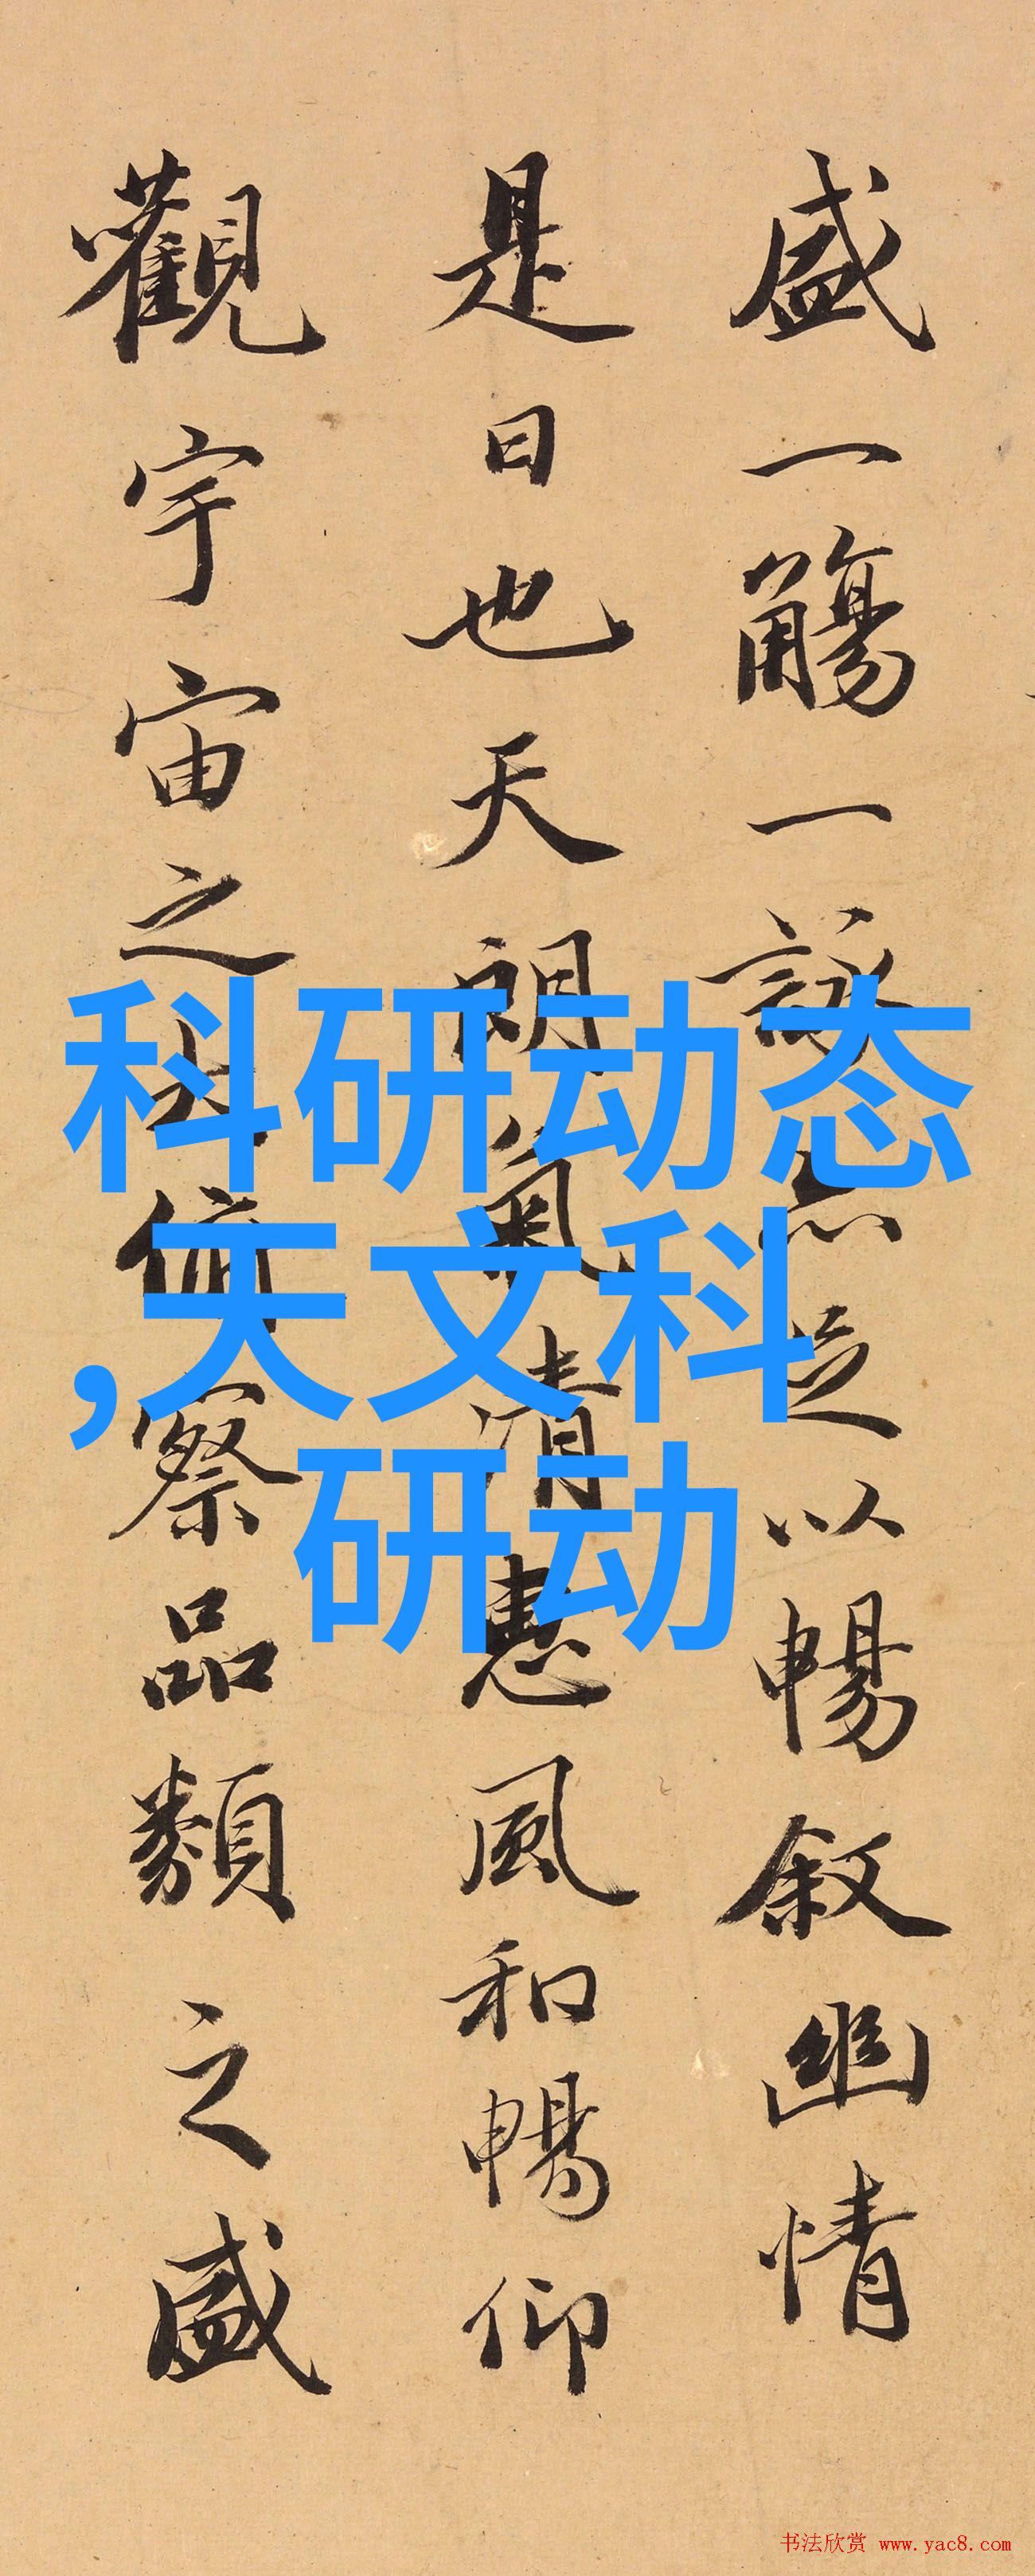 盛一觴一詠亦足以暢叙幽情
是日也天朗氣清惠風和暢仰
觀宇宙之大俯察品類之盛
科研动态
,天文科
研动
书法欣赏 www.yac8.com